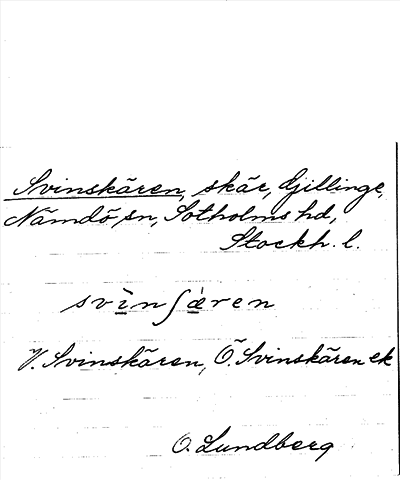 Svinskären, skär, Gillinge,
Nämdö sn, Sotholms hd,
Stockh. l.
svì̱nʃæ̱̀ren
V. Svinskären, Ö. Svinskären ek
O. Lundberg